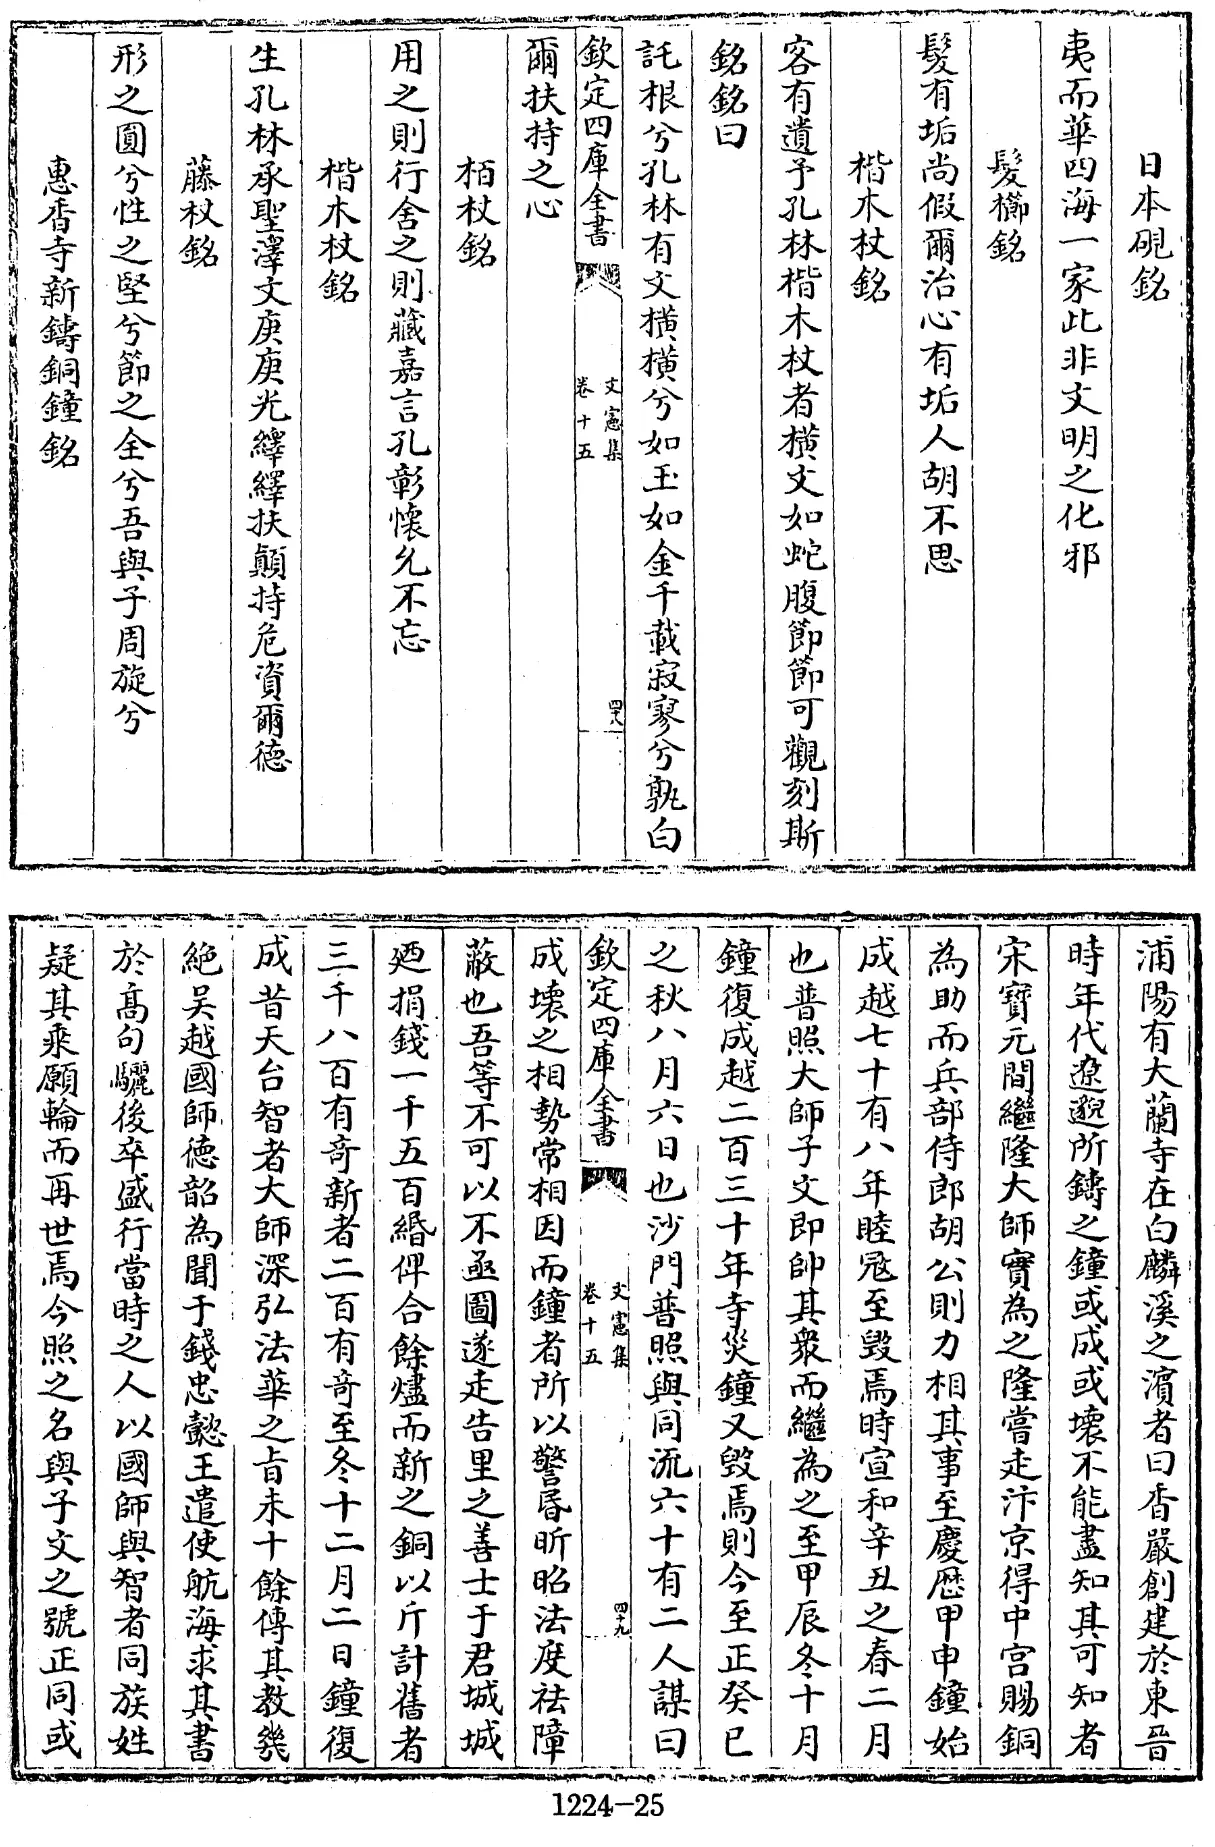 日本硯銘
夷而華四海一家此非文明之化邪
髮櫛銘
髮有垢尚假爾治心有垢人胡不思
楷木杖銘
客有遺予孔林楷木杖者橫文如蛇腹節節可觀刻斯
銘銘曰
託根兮孔林有文橫橫兮如玉如金千載寂寥兮孰白
欽定四庫全書
文憲集
卷十五
四十八
爾扶持之心
栢杖銘
用之則行舍之則藏嘉言孔彰懷允不忘
楷木杖銘
生孔林承聖澤文庚庚光繹繹扶顛持危資爾德
藤杖銘
形之圓兮性之堅兮節之全兮吾與子周旋兮
惠香寺新鑄銅鐘銘
浦陽有大蘭寺在白麟溪之濵者曰香嚴創建於東晉
時年代遼邈所鑄之鐘或成或壊不能盡知其可知者
宋寳元間繼隆大師實為之隆嘗走汴京得中宫賜銅
為助而兵部侍郎胡公則力相其事至慶厯甲申鐘始
成越七十有八年睦冦至毁焉時宣和辛丑之春二月
也普照大師子文即帥其衆而繼為之至甲辰冬十月
鐘復成越二百三十年寺災鐘又毁焉則今至正癸巳
之秋八月六日也沙門普照與同流六十有二人謀曰
欽定四庫全書
文憲集
卷十五
四十九
成壊之相勢常相因而鐘者所以警昬昕昭法度祛障
蔽也吾等不可以不亟圖遂走告里之善士于君城城
廼捐錢一千五百緡俾合餘燼而新之銅以斤計舊者
三千八百有竒新者二百有竒至冬十二月二日鐘復
成昔天台智者大師深弘法華之㫖未十餘傳其教幾
絶吴越國師德韶為聞于錢忠懿王遣使航海求其書
於髙句驪後卒盛行當時之人以國師與智者同族姓
疑其乘願輪而再世焉今照之名與子文之號正同或
1224-25